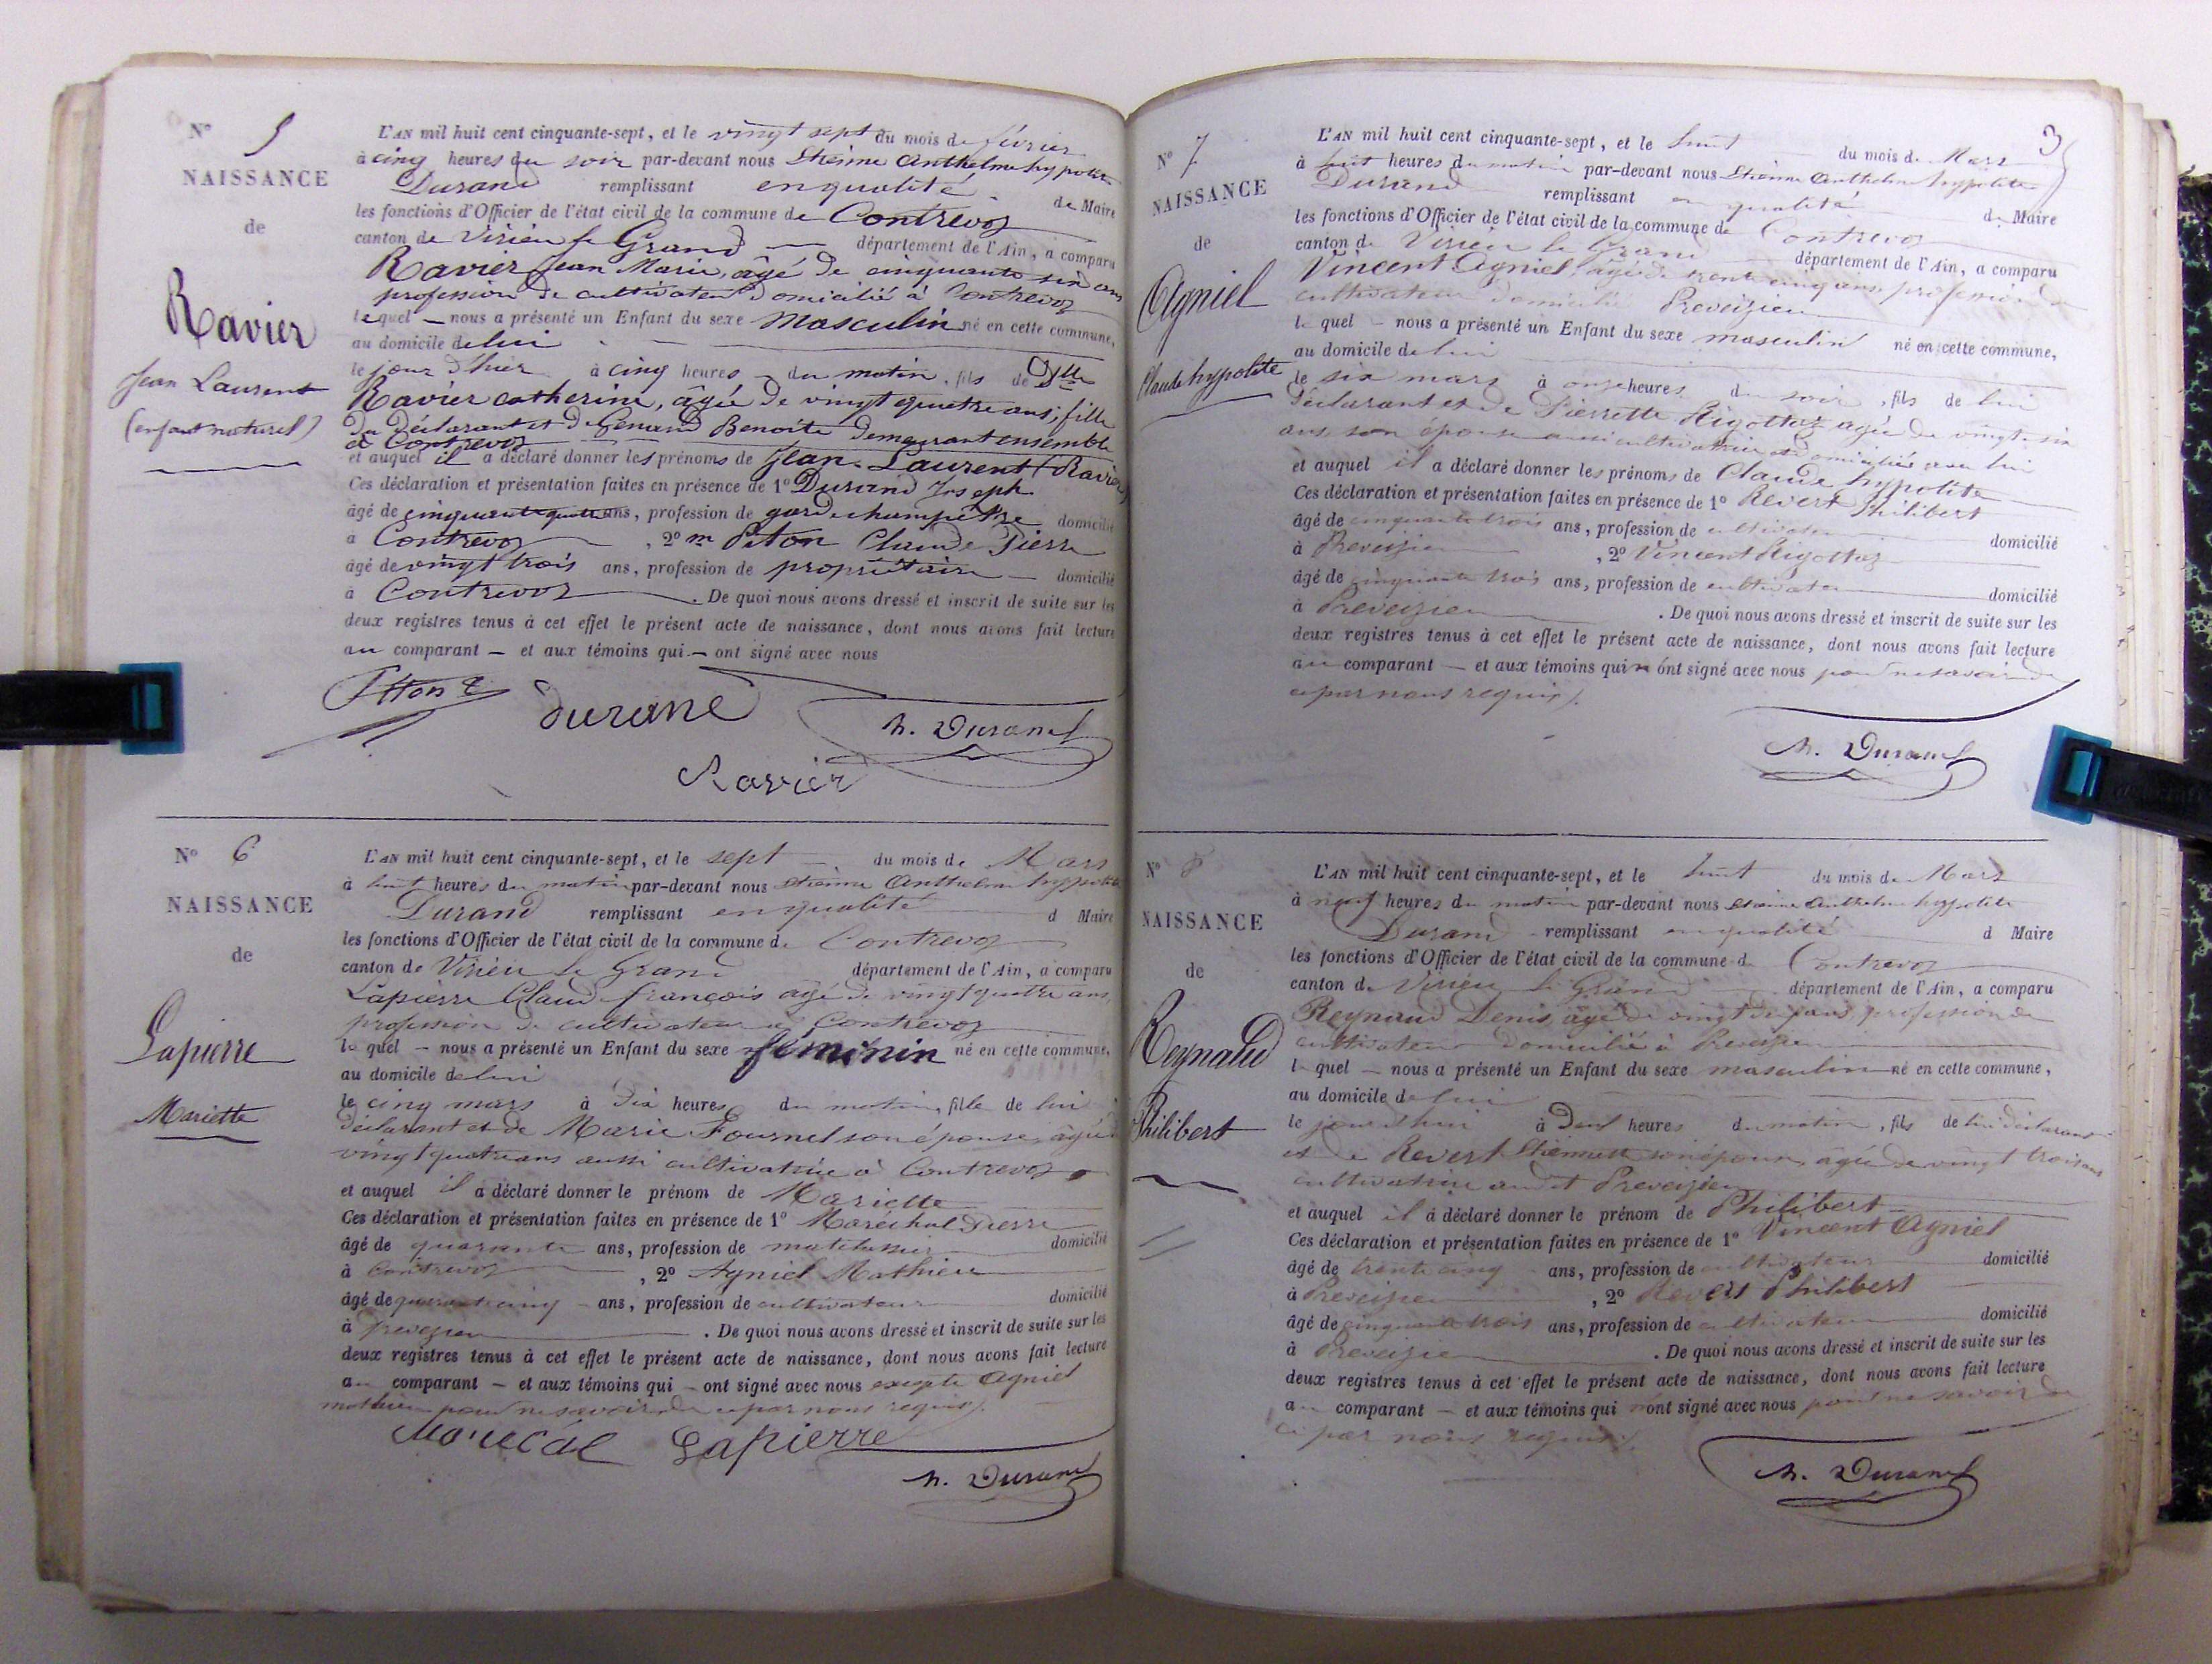 N° 5
NAISSANCE
de
Ravier
Jean Laurent
(enfant naturel)
L'AN mil huit cent cinquante-sept, et le vingt sept du mois de février
à cinq heures du soir par-devant nous Etienne Anthelme hypolite
Durand remplissant en qualité de Maire
les fonctions d'Officier de l'état civil de la commune de Contrevoz
canton de Virieu le Grand département de l'Ain, a comparu
Ravier Jean Marie, âgé de cinquante six ans
profession de cultivateur domicilié à Contrevoz
lequel nous a présenté un Enfant du sexe Masculin né en cette commune,
au domicile de lui
le jour d'hier à cinq heures du matin, fils de Dlle
Ravier catherine, âgée de vingt quatre ans, fille
du Déclarant et de Genand Benoite demeurant ensemble
à Contrevoz
et auquel il a déclaré donner les prénoms de Jean-Laurent (Ravier)
Ces déclaration et présentation faites en présence de 1° Durand Joseph
âgé de cinquante quatre ans, profession de garde champêtre domicilié
à Contrevoz, 2° m Piton Claude Pierre
âgé de vingt trois ans, profession de propriétaire domicilié
à Contrevoz. De quoi nous avons dressé et inscrit de suite sur les
deux registres tenus à cet effet le présent acte de naissance, dont nous avons fait lecture
au comparant et aux témoins qui ont signé avec nous
durand
h. Durand
Ravier
N° 6
NAISSANCE
de
Lapierre
Mariette
L'AN mil huit cent cinquante-sept, et le sept du mois de Mars
à huit heures du matin par-devant nous Etienne Anthelme hypolite
Durand remplissant en qualité d Maire
les fonctions d'Officier de l'état civil de la commune de Contrevoz
canton de Virieu le Grand département de l'Ain, a comparu
Lapierre Claude françois âgé de vingt quatre ans,
profession de cultivateur à Contrevoz
lequel nous a présenté un Enfant du sexe féminin né en cette commune,
au domicile de lui
le cinq mars à Dix heures du matin, fille de lui
déclarant et de Marie Fournel son épouse, âgée
vingt quatre ans aussi cultivatrice à Contrevoz
et auquel il a déclaré donner le prénom de Mariette
Ces déclaration et présentation faites en présence de 1° Maréchal Pierre
âgé de quarante ans, profession de matelassier domicilié
à Contrevoz, 2° Agniel Mathieu
âgé de quarante cinq ans, profession de cultivateur domicilié
à Preveyzieu. De quoi nous avons dressé et inscrit de suite sur les
deux registres tenus à cet effet le présent acte de naissance, dont nous avons fait lecture
au comparant et aux témoins qui ont signé avec nous excepté Agniel
mathieu pour ne savoir de ce par nous requis.
Lapierre
h. Durand
3
N° 7
NAISSANCE
de
Agniel
Claude hypolite
L'AN mil huit cent cinquante-sept, et le huit du mois de Mars
à huit heures du matin par-devant nous Etienne Anthelme hyppolite
Durand remplissant en qualité de Maire
les fonctions d'Officier de l'état civil de la commune de Contrevoz
canton de Virieu le Grand département de l'Ain, a comparu
Vincent Agniel, âgé de trente cinq ans profession de
cultivateur domicilié Preveizieu
lequel nous a présenté un Enfant du sexe masculin né en cette commune,
au domicile de lui
le six mars à onze heures du soir, fils de lui
déclarant et de Pierrette Rigottaz agée de vingt six
ans son épouse aussi cultivatrice et domiciliée avec lui
et auquel il a déclaré donner les prénoms de Claude hypolite
Ces déclaration et présentation faites en présence de 1° Revert Philibert
âgé de cinquante trois ans, profession de cultivateur domicilié
à Preveizieu, 2° Vincent Rigottaz
âgé de cinquante trois ans, profession de cultivateur domicilié
à Preveizieu. De quoi nous avons dressé et inscrit de suite sur les
deux registres tenus à cet effet le présent acte de naissance, dont nous avons fait lecture
au comparant et aux témoins qui n'ont signé avec nous pour ne savoir de
ce par nous requis.
h. Durand
N° 8
NAISSANCE
de
Reynaud
Philibert
L'AN mil huit cent cinquante-sept, et le huit du mois de Mars
à neuf heures du matin par-devant nous Etienne Anthelme hyppolite
Durand remplissant en qualité d Maire
les fonctions d'Officier de l'état civil de la commune de Contrevoz
canton de Virieu le Grand département de l'Ain, a comparu
Reynaud Denis, âgé de vingt ans, profession de
cultivateur domicilié à Preveizieu
lequel nous a présenté un Enfant du sexe masculin né en cette commune,
au domicile de lui
le jour d'hui à Deux heures du matin, fils de lui déclarant
et de Revert Etiennette son épouse, âgée de vingt trois ans
cultivatrice audit Preveizieu
et auquel il a déclaré donner le prénom de Philibert
Ces déclaration et présentation faites en présence de 1° Vincent Agniel
âgé de trente cinq ans, profession de cultivateur domicilié
à Preveizieu, 2° Revert Philibert
âgé de cinquante trois ans, profession de cultivateur domicilié
à Preveizieu. De quoi nous avons dressé et inscrit de suite sur les
deux registres tenus à cet effet le présent acte de naissance, dont nous avons fait lecture
au comparant et aux témoins qui n'ont signé avec nous pour ne savoir de
ce par nous requis.
h. Durand